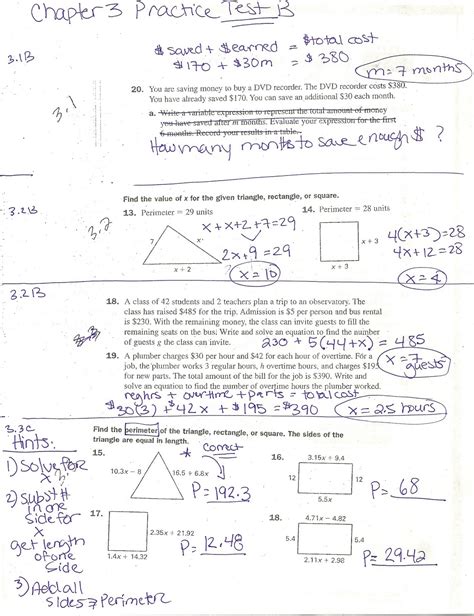 Chapter 3 Practice Test B
3.1B
$ saved + $ earned = $ total cost
$170 + $30m = $380
m = 7 months
3.1
20. You are saving money to buy a DVD recorder. The DVD recorder costs $380.
You have already saved $170. You can save an additional $30 each month.
a. Write a variable expression to represent the total amount of money
you have saved after m months. Evaluate your expression for the first
6 months. Record your results in a table.
How many months to save enough $ ?
Find the value of x for the given triangle, rectangle, or square.
3.2B
3.2
13. Perimeter = 29 units
x + x + 2 + 7 = 29
7
x
x + 2
2x + 9 = 29
x = 10
14. Perimeter = 28 units
x + 3
x + 3
4(x+3) = 28
4x + 12 = 28
x = 4
3.2B
18. A class of 42 students and 2 teachers plan a trip to an observatory. The
class has raised $485 for the trip. Admission is $5 per person and bus rental
is $230. With the remaining money, the class can invite guests to fill the
remaining seats on the bus. Write and solve an equation to find the number
of guests g the class can invite.
230 + 5(44+x) = 485
x = 7 guests
19. A plumber charges $30 per hour and $42 for each hour of overtime. For a
job, the plumber works 3 regular hours, h overtime hours, and charges $195
for new parts. The total amount of the bill for the job is $390. Write and
solve an equation to find the number of overtime hours the plumber worked.
reghrs + overtime + parts = total cost
$30(3) + $42x + $195 = $390
x = 2.5 hours
3.3C
Find the perimeter of the triangle, rectangle, or square. The sides of the
triangle are equal in length.
Hints:
1) Solve for
"x"
2) Subst #
in one
side for
x
get length
of one
side
3) Add all
sides = Perimeter
15.
10.3x − 8
16.5 + 6.8x
* Correct
P = 192.3
16.
3.15x + 9.4
12
12
5.5x
P = 68
17.
2.35x + 21.92
1.4x + 14.32
P = 12.48
18.
4.71x − 4.82
5.4
5.4
2.11x + 2.98
P = 29.42